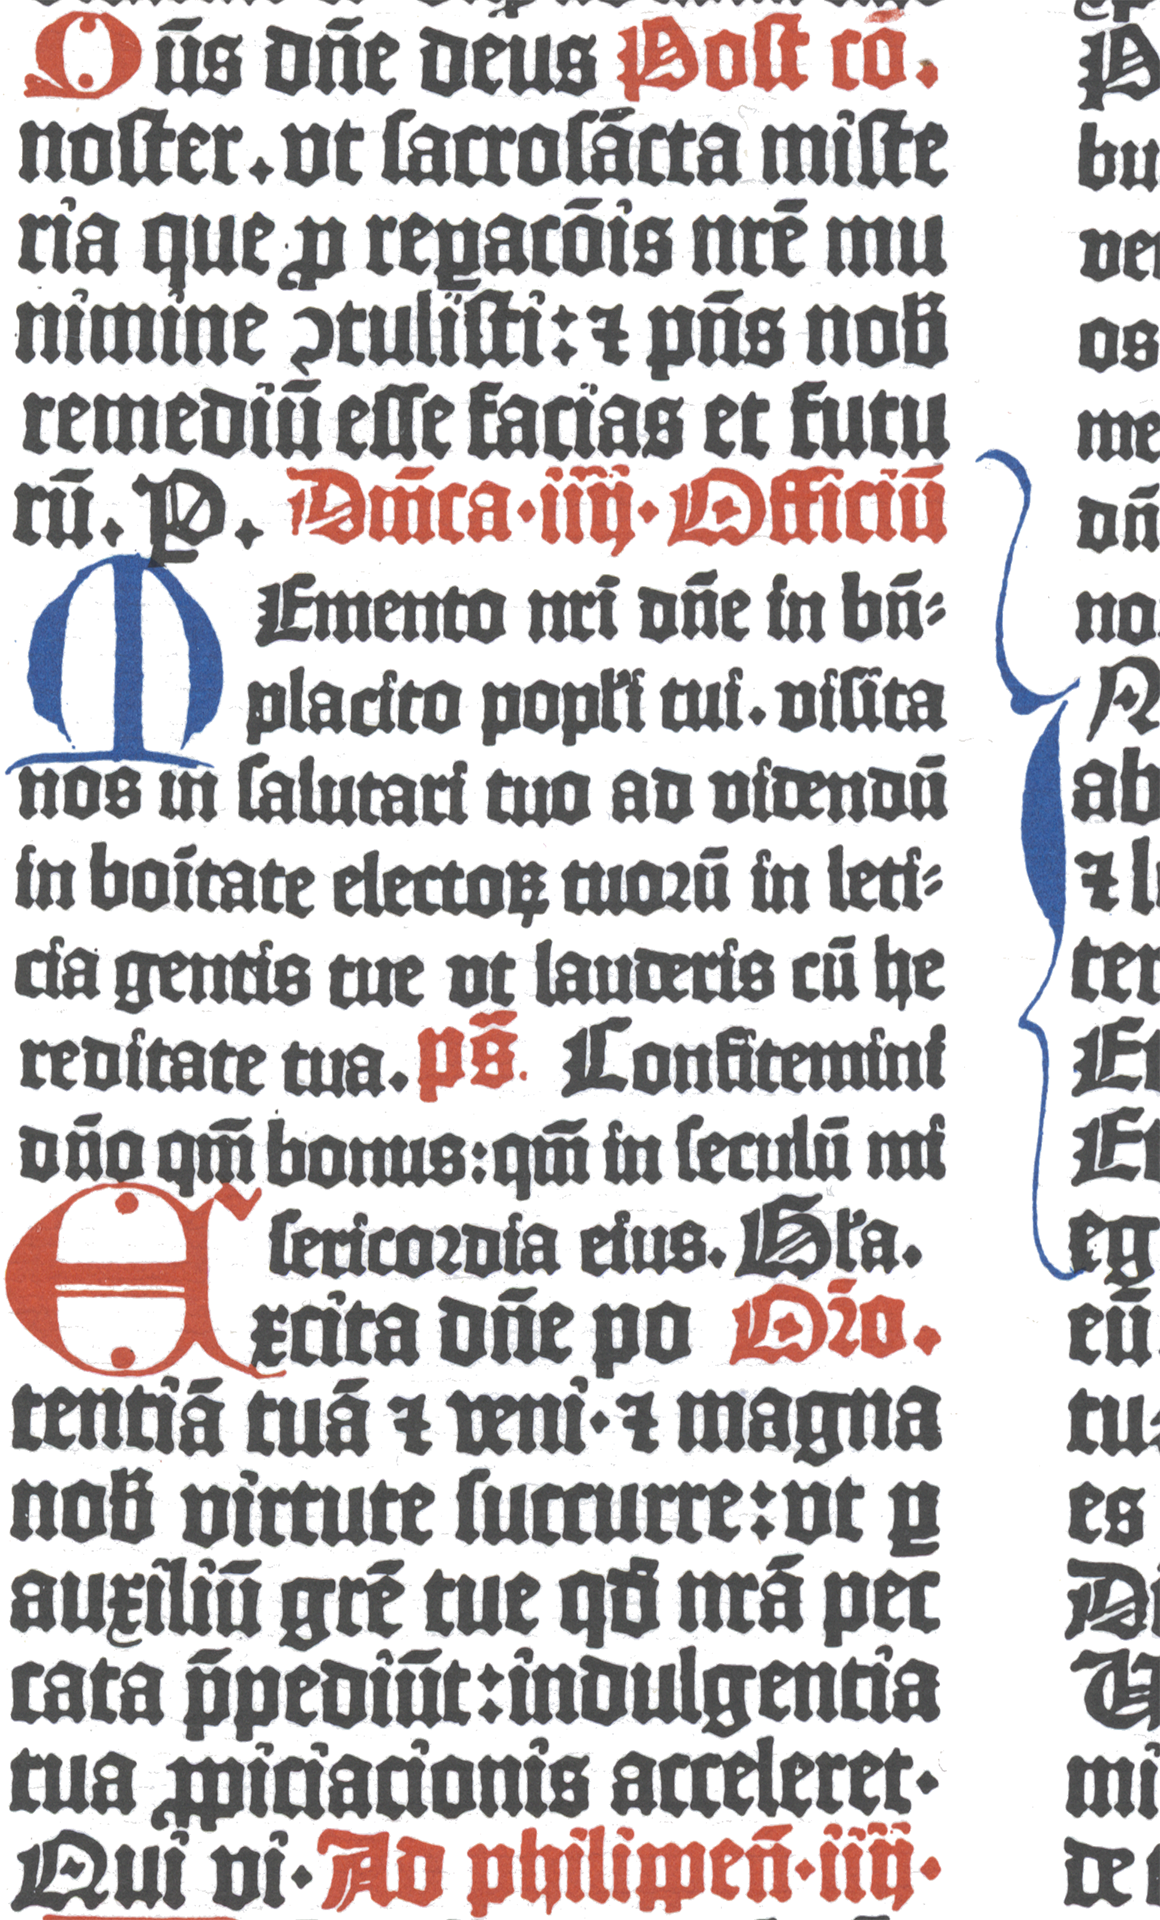 Qūs dn̄e deus Post cō.
noster. vt sacrosācta miste
ria que ꝓ reꝑacōis nrē mu
nimine ꝯtulisti: ⁊ pn̄s nob̄
remediū esse facias et futu
rū. P. Dm̄ca · iiij · Officiū
MEmento nrī dn̄e in bn̄⸗
placito popl̄i tui. visita
nos in salutari tuo ad videndū
in boītate electoꝝ tuoꝛū in leti⸗
cia gentis tue vt lauderis cū he
reditate tua. ps̄. Confitemini
dn̄o qm̄ bonus: qm̄ in seculū mi
sericoꝛdia eius. Gl̄a.
Excita dn̄e po Oꝛ̄o.
tentiā tuā ⁊ veni · ⁊ magna
nob̄ virtute succurre: vt ꝑ
auxiliū grē tue qd̄ nrā pec
cata p̄pediūt: indulgentia
tua ꝓpiciacionis acceleret ·
Qui vi · Ad philippen̄ · iiij ·
bu
os
me
dn̄
no
A
ab
⁊ l
ter
Et
Et
eg
eū
tu
es
Di
mi
de